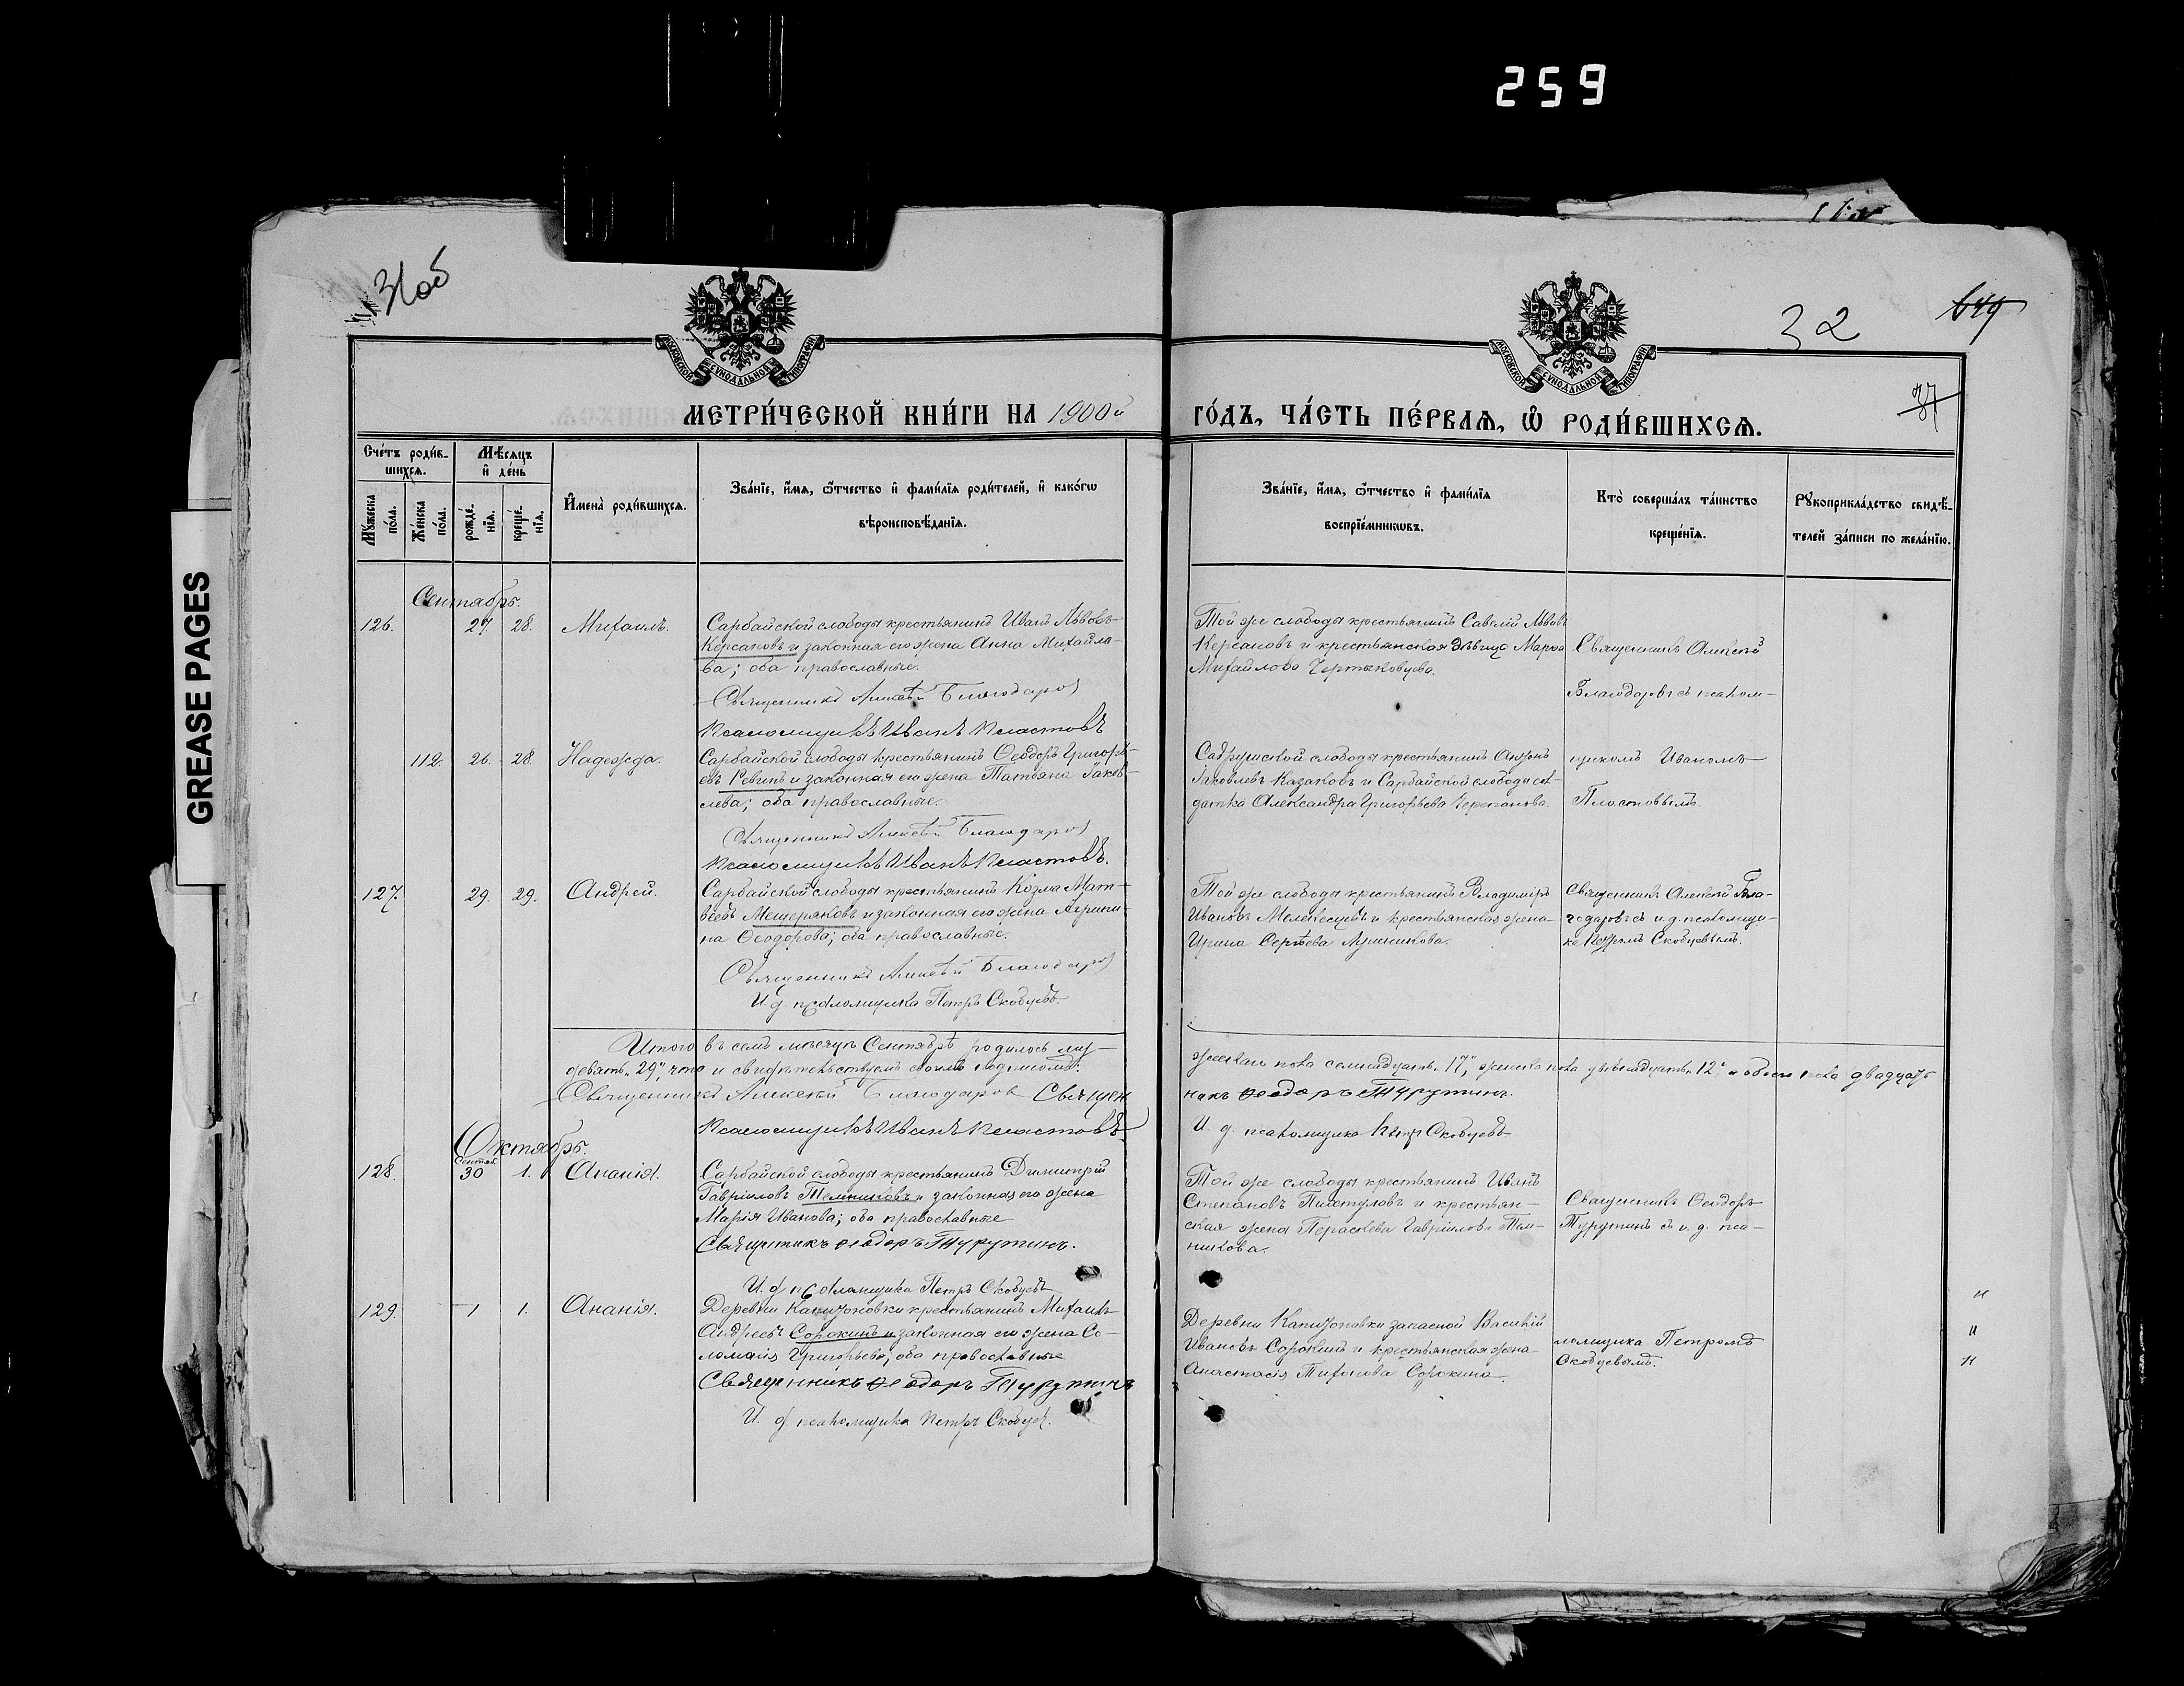 259
GREASE PAGES
31об
32
649
37
МОСКОВСКОЙ СУНОДАЛЬНОЙ ТИПОГРАФІИ
МОСКОВСКОЙ СУНОДАЛЬНОЙ ТИПОГРАФІИ
МЕТРИ́ЧЕСКОЙ КНИ́ГИ НА 1900й
ГО́ДЪ, ЧА́СТЬ ПЕ́РВАѦ, Ѽ РОДИ́ВШИХСѦ.
Сче́тъ роди́в-
шихсѧ.
Мѣ́сѧцъ
и҆ де́нь
Мꙋжеска по́ла.
Же́нска по́ла.
рожде́-
нїѧ.
креще́-
нїѧ.
И҆мена̀ роди́вшихсѧ.
Зва́нїе, и҆́мѧ, ѻ҆́тчество и҆ фами́лїѧ роди́телей, и҆ како́гѡ
вѣроисповѣ́данїѧ.
Зва́нїе, и҆́мѧ, ѻ҆́тчество и҆ фами́лїѧ
воспрїе́мникѡвъ.
Кто̀ соверша́лъ та́инство
креще́нїѧ.
Рꙋкоприкла́дство свидѣ́-
телей за́писи по жела́нїю.
Сентябрь.
126.
27.
28.
Михаилъ.
Сарбайской слободы крестьянинъ Иванъ Львовъ
Керсановъ и законная его жена Анна Михайло-
ва; оба православные.
Священникъ Алексѣй Благодаров
Псаломщикъ Иванъ Пластовъ
Той же слободы крестьянинъ Савелій Львовъ
Керсановъ и крестьянская дѣвица Марѳа
Михайлова Чертыковцева.
Священникъ Алексѣй
Благодаровъ съ псалом-
112.
26.
28.
Надежда.
Сарбайской слободы крестьянинъ Ѳеодоръ Григорь-
евъ Ревинъ и законная его жена Татьяна Яков-
лева; оба православные.
Священникъ Алексѣй Благодаров
Псаломщикъ Иванъ Пластовъ.
слободы крестьянинъ
Яковлевъ Казаковъ и Сарбайской слободы сол-
датка Александра Григорьева Черепанова.
щикомъ Иваномъ
Пластовымъ.
127.
29.
29.
Андрей.
Сарбайской слободы крестьянинъ Козма Мат-
вѣевъ Мещеряковъ и законная его жена Агрипи-
на Ѳеодорова; оба православные.
Священникъ Алексѣй Благодаров
И. д. псаломщика Петръ Скобцевъ.
Той же слободы крестьянинъ Владиміръ
Ивановъ Мелекесцевъ и крестьянская жена
Ирина Сергѣева Лушникова.
Священникъ Алексѣй Бла-
годаровъ съ и. д. псаломщи-
ка Петромъ Скобцевымъ.
Итого въ семъ мѣсяцѣ Сентябрѣ родилось му-
жеска пола семнадцать „17“, женска пола двѣнадцать „12“ а обоего пола двадцать
девять „29“, что и свидѣтельствуемъ своимъ подписомъ.
Священникъ Алексѣй Благодаров Священ
никъ Ѳеодоръ Турутинъ.
Псаломщикъ Иванъ Пластовъ
И. д. псаломщика Петръ Скобцевъ
Октябрь.
128.
Сентяб.
30
1.
Ананія.
Сарбайской слободы крестьянинъ Димитрій
Гавріиловъ Темниковъ и законная его жена
Марія Иванова; оба православные
Священникъ Ѳеодоръ Турутинъ.
И. д. псаломщика Петръ Скобцевъ
Той же слободы крестьянинъ Иванъ
Степановъ Пистуловъ и крестьян-
ская жена Параскева Гавріилова Тем-
никова.
Священникъ Ѳеодоръ
Турутинъ съ и. д. пса-
129.
1
1.
Ананія.
Деревни Капитоновки крестьянинъ Михаилъ
Андреевъ Сорокинъ и законная его жена Со-
ломанія Григорьева; оба православные
Священникъ Ѳеодоръ Турутинъ
И. д. псаломщика Петръ Скобцев.
Деревни Капитоновки запасной Василій
Ивановъ Сорокинъ и крестьянская жена
Анастасія Тихонова Сорокина.
ломщика Петромъ
Скобцевымъ.